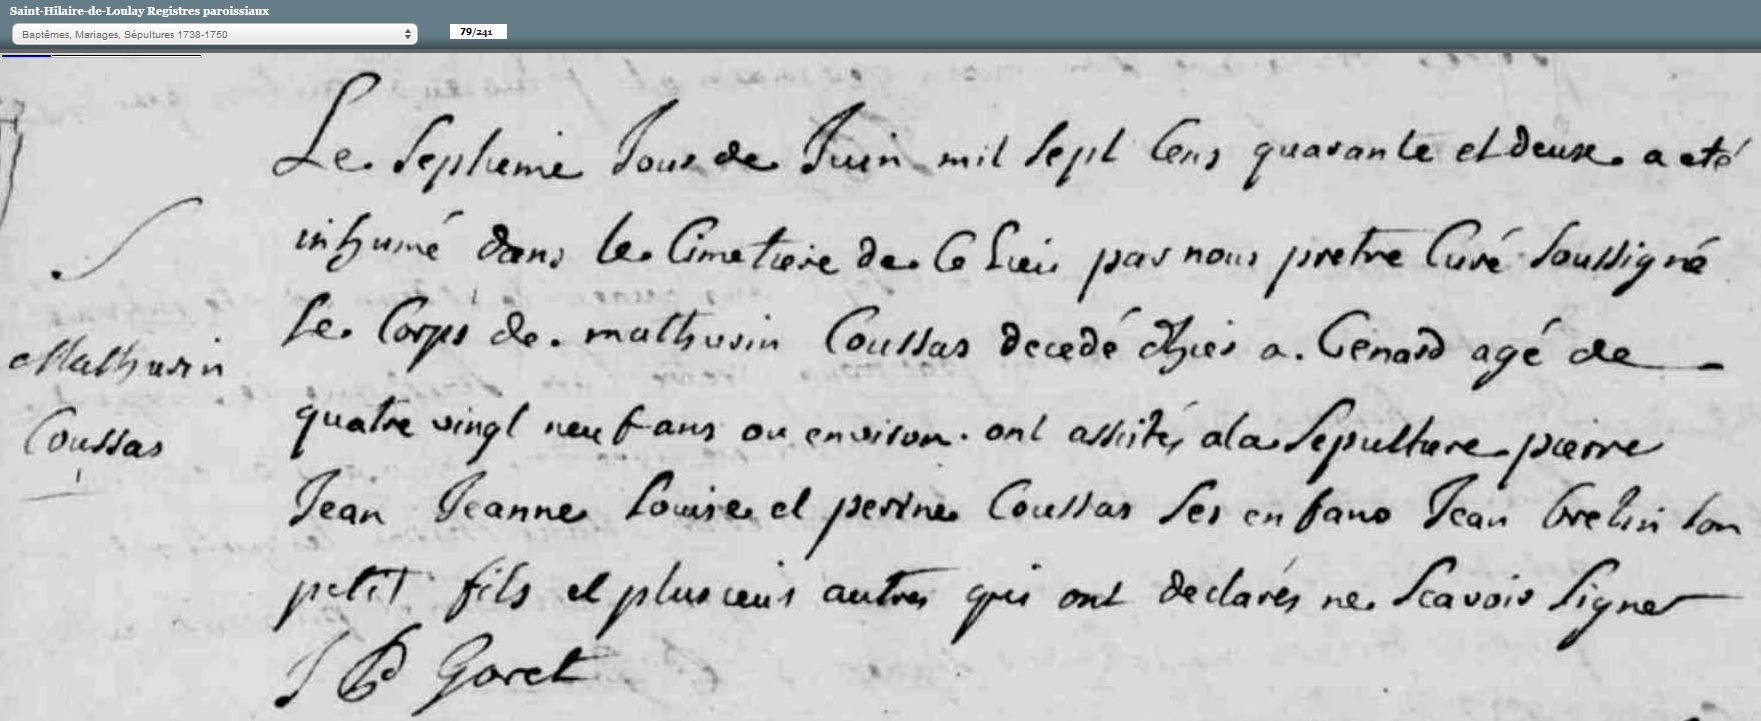 Saint-Hilaire-de-Loulay Registres paroissiaux
Baptêmes, Mariages, Sépultures 1738-1750
79/241
Le septieme Jour de Juin mil sept Cens quarante et deux a eté
inhumé dans le Cimetiere de Ce Lieu par nous pretre Curé soussigné
le Corps de mathurin Coussas decedé d'hier a agé de
quatre vingt neuf ans ou environ. ont assités a la sepulture pierre
Jean Jeanne Louise et perine Coussas ses enfans Jean son
petit fils et plusieurs autres qui ont declarés ne scavoir signer
Mathurin
Coussas
J B Goret